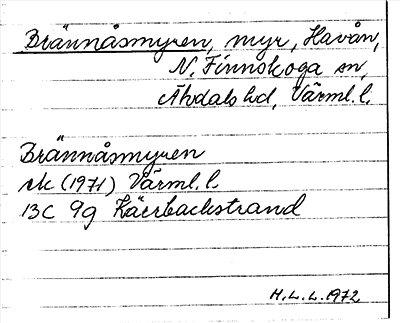 Brännåsmyren, myr, Havån,
N. Finnskoga sn,
Älvdals hd, Värml. l.
Brännåsmyren
rk (1971) Värml. l.
13C 9g Käcrbackstrand
H.L.L. 1972